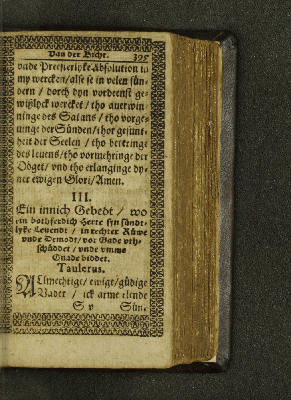 Van der Bicht. 395
vnde Preesterlyke Absolution in
my wercken/alse se in velen sün-
dern / dorch dyn vordeenst ge-
wißlyck wercket / tho auerwin-
ninge des Satans / tho vorge-
uinge der Sünden/thor gesunt-
heit der Seelen / tho beteringe
des leuens/tho vormehringe der
Döget/ vnd tho erlanginge dy-
ner ewigen Glori/Amen.
III.
Ein innich Gebedt / wo
ein bothferdich Herte syn sündt-
lyke Leuendt / in rechter Rüwe
vnde Demodt/vor Gade vth-
schüddet / vnde vmme
Gnade biddet.
Taulerus.
ALlmechtige/ ewige/güdige
Vader / ick arme elende
S v Sün-